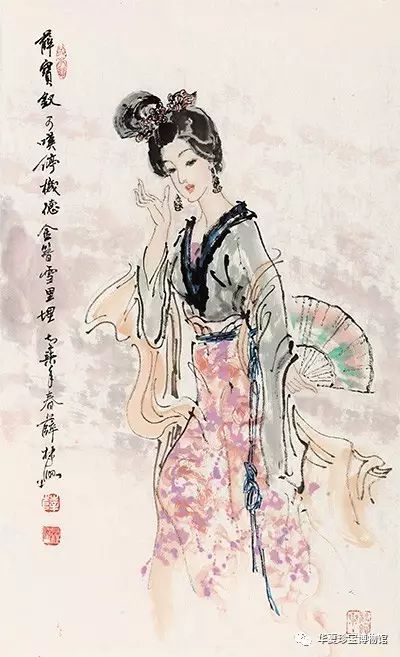 薛寶釵可嘆停機德金簪雪里埋年春薛林兴
华夏珍宝博物馆